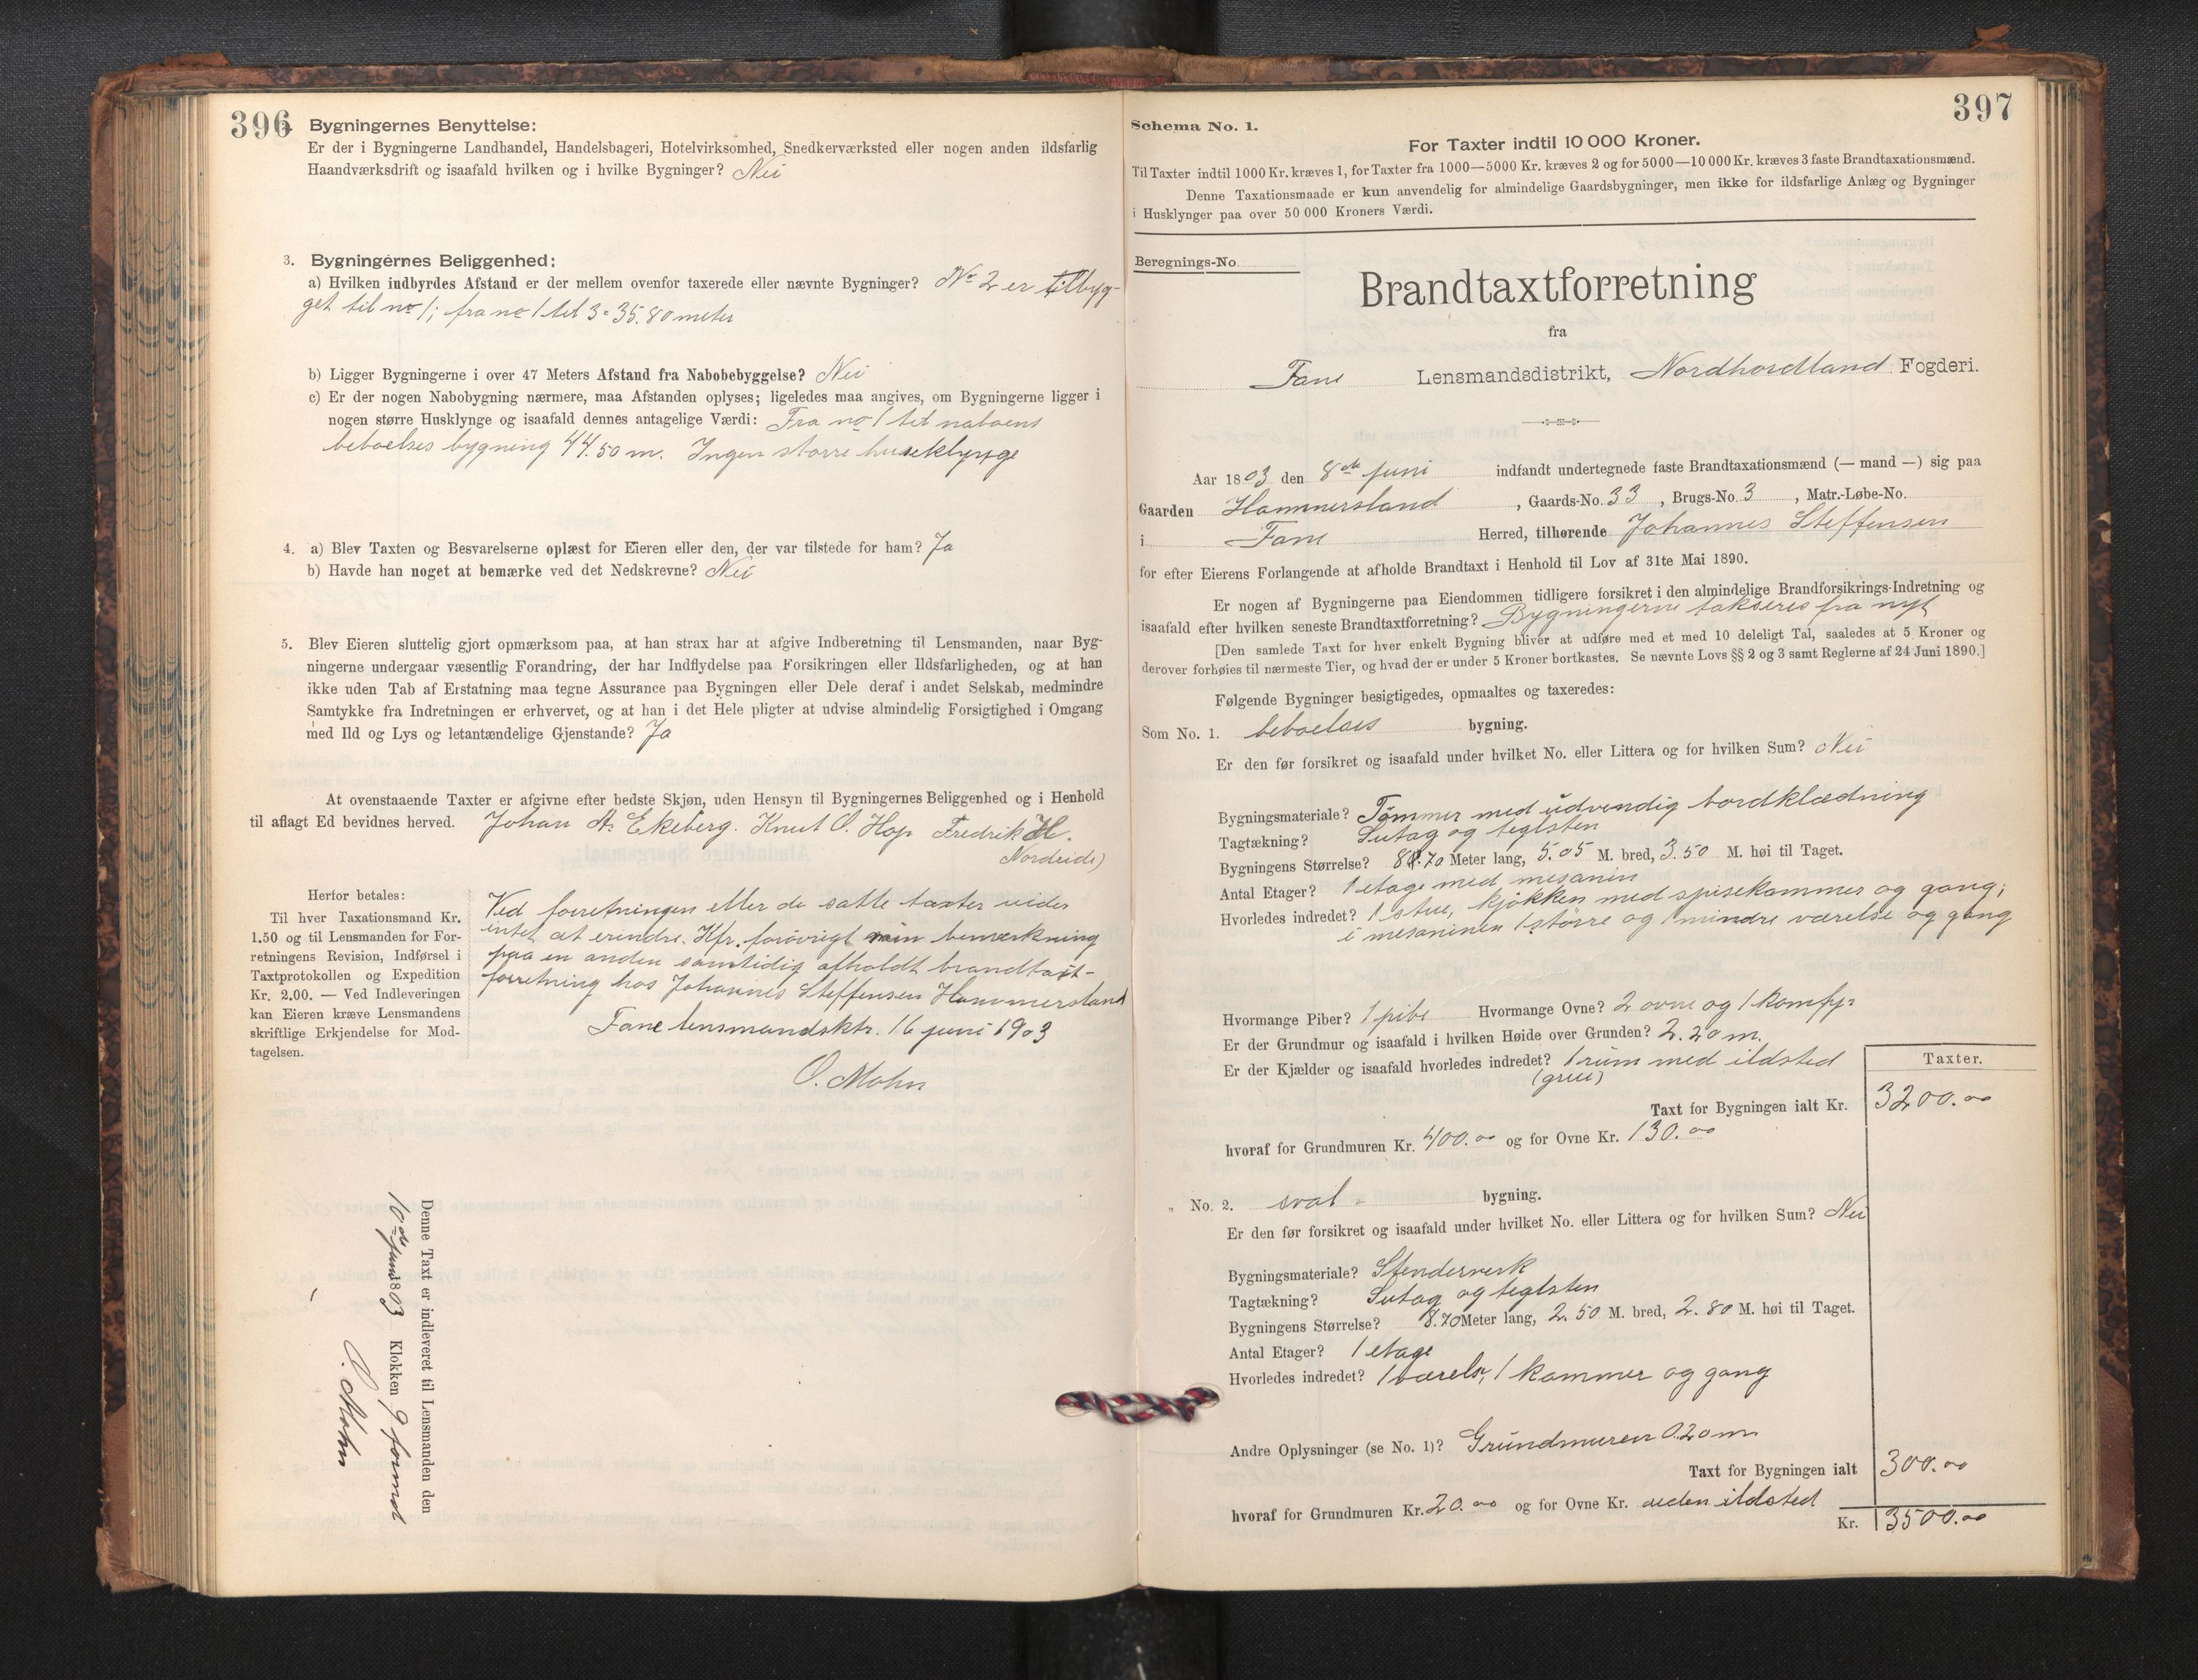 396
Bygningernes Benyttelse:
Er der i Bygningerne Landhandel, Handelsbageri, Hotelvirksomhed, Snedkerværksted eller nogen anden ildsfarlig
Haandværksdrift og isaafald hvilken og i hvilke Bygninger? Nei
3. Bygningernes Beliggenhed:
a) Hvilken indbyrdes Afstand er der mellem ovenfor taxerede eller nævnte Bygninger? No 2 er tilbyg-
get til no 1; fra no 1 til 3 = 35.80 meter
b) Ligger Bygningerne i over 47 Meters Afstand fra Nabobebyggelse? Nei
c) Er der nogen Nabobygning nærmere, maa Afstanden oplyses; ligeledes maa angives, om Bygningerne ligger i
nogen større Husklynge og isaafald dennes antagelige Værdi: Fra no 1 til naboens
beboelses bygning 44.50 m. Ingen større huseklynge
4. a) Blev Taxten og Besvarelserne oplæst for Eieren eller den, der var tilstede for ham? Ja
b) Havde han noget at bemærke ved det Nedskrevne? Nei
5. Blev Eieren sluttelig gjort opmærksom paa, at han strax har at afgive Indberetning til Lensmanden, naar Byg-
ningerne undergaar væsentlig Forandring, der har Indflydelse paa Forsikringen eller Ildsfarligheden, og at han
ikke uden Tab af Erstatning maa tegne Assurance paa Bygningen eller Dele deraf i andet Selskab, medmindre
Samtykke fra Indretningen er erhvervet, og at han i det Hele pligter at udvise almindelig Forsigtighed i Omgang
med Ild og Lys og letantændelige Gjenstande? Ja
At ovenstaaende Taxter er afgivne efter bedste Skjøn, uden Hensyn til Bygningernes Beliggenhed og i Henhold
til aflagt Ed bevidnes herved. Johan A. Ekeberg. Knut O. Hop Fredrik H.
Nordeide)
Herfor betales:
Til hver Taxationsmand Kr.
1.50 og til Lensmanden for For-
retningens Revision, Indførsel i
Taxtprotokollen og Expedition
Kr. 2.00. — Ved Indleveringen
kan Eieren kræve Lensmandens
skriftlige Erkjendelse for Mod-
tagelsen.
Ved forretningen eller de satte taxter vides
intet at erindre. Kfr. forøvrigt min bemærkning
paa en anden samtidig afholdt brandtaxt-
forretning hos Johannes Steffensen Hammersland
Fane lensmandsktr. 16 juni 1903
O. Mohn
Denne Taxt er indleveret til Lensmanden den
10de juni 1803 Klokken 9 formd
O. Mohn
397
Schema No. 1.
For Taxter indtil 10 000 Kroner.
Til Taxter indtil 1000 Kr. kræves 1, for Taxter fra 1000—5000 Kr. kræves 2 og for 5000—10 000 Kr. kræves 3 faste Brandtaxationsmænd.
Denne Taxationsmaade er kun anvendelig for almindelige Gaardsbygninger, men ikke for ildsfarlige Anlæg og Bygninger
i Husklynger paa over 50 000 Kroners Værdi.
Beregnings-No.
Brandtaxtforretning
fra
Fane Lensmandsdistrikt, Nordhordland Fogderi.
Aar 1803 den 8de juni indfandt undertegnede faste Brandtaxationsmænd (— mand —) sig paa
Gaarden Hammersland, Gaards-No. 33, Brugs-No. 3, Matr.-Løbe-No.
i Fane Herred, tilhørende Johannes Steffensen
for efter Eierens Forlangende at afholde Brandtaxt i Henhold til Lov af 31te Mai 1890.
Er nogen af Bygningerne paa Eiendommen tidligere forsikret i den almindelige Brandforsikrings-Indretning og
isaafald efter hvilken seneste Brandtaxtforretning? Bygningerne takseres fra nyt
[Den samlede Taxt for hver enkelt Bygning bliver at udføre med et med 10 deleligt Tal, saaledes at 5 Kroner og
derover forhøies til nærmeste Tier, og hvad der er under 5 Kroner bortkastes. Se nævnte Lovs §§ 2 og 3 samt Reglerne af 24 Juni 1890.]
Følgende Bygninger besigtigedes, opmaaltes og taxeredes:
Som No. 1. beboelses bygning.
Er den før forsikret og isaafald under hvilket No. eller Littera og for hvilken Sum? Nei
Bygningsmateriale? Tømmer med udvendig bordklædning
Tagtækning? Sutag og teglsten
Bygningens Størrelse? 8.70 Meter lang, 5.05 M. bred, 3.50 M. høi til Taget.
Antal Etager? 1 etage med mesanin
Hvorledes indredet? 1 stue, kjøkken med spisekammer og gang;
i mesaninen 1 større og 1 mindre værelse og gang
Hvormange Piber? 1 pibe Hvormange Ovne? 2 ovne og 1 komfyr
Er der Grundmur og isaafald i hvilken Høide over Grunden? 2.20 m.
Er der Kjælder og isaafald hvorledes indredet? 1 rum med ildsted
(grue)
Taxter.
Taxt for Bygningen ialt Kr. 3200.00
hvoraf for Grundmuren Kr. 400.00 og for Ovne Kr. 130.00
„ No. 2. sval- bygning.
Er den før forsikret og isaafald under hvilket No. eller Littera og for hvilken Sum? Nei
Bygningsmateriale? Stenderverk
Tagtækning? Sutag og teglsten
Bygningens Størrelse? 8.70 Meter lang, 2.50 M. bred, 2.80 M. høi til Taget.
Antal Etager? 1 etage
Hvorledes indredet? 1 værelse, 1 kammer og gang
Andre Oplysninger (se No. 1)? Grundmuren 0.20 m
Taxt for Bygningen ialt 300.00
hvoraf for Grundmuren Kr. 20.00 og for Ovne Kr. uden ildsted
Kr. 3500.00